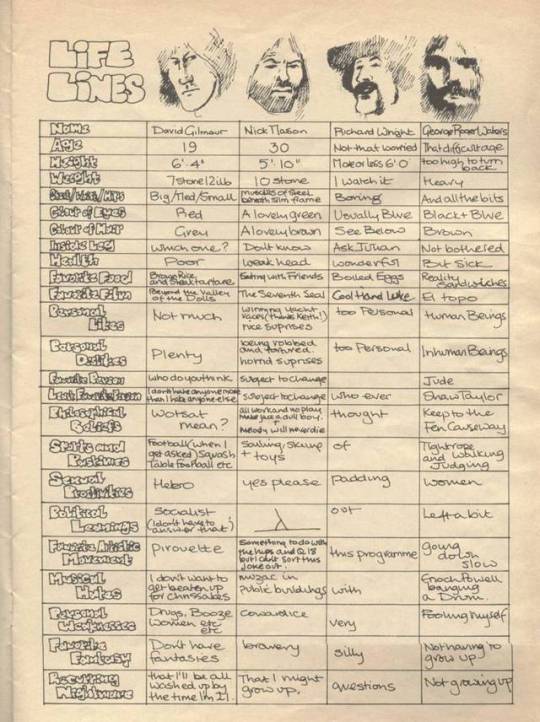 LiFE
LiNES
Name David Gilmour Nick Mason Richard Wright George Roger Waters
Age 19 30 Not that worried That difficult age
Height 6'-4" 5'-10" More or less 6'0 too high to turn back
Weight 7stone 12llb 10 stone I watch it Heavy
Chest/Waist/Hips Big/Tied/Small muscles of steel beneath slim frame Boring And all the bits
Colour of Eyes Red A lovely green Usually Blue Black + Blue
Colour of Hair Grey A lovely brown See Below Brown
Inside Leg Which one? Don't know Ask Julian Not bothered
Health Poor Weak head Wonderful But Sick
Favorite Food Brown Rice and steak tartare Eating with Friends Boiled Eggs Reality Sandwiches
Favorite Film Beyond the Valley of the Dolls The Seventh Seal Cool Hand Luke El topo
Personal Likes Not much Winning Yacht races (thanks Keith!) nice suprises too Personal Human Beings
Personal Dislikes Plenty being robbed and tortured. horrid suprises too Personal Inhuman Beings
Favorite Person who do you think subject to change Jude
Least Favorite Person I don't hate anyone more than I hate anyone else subject to change who ever Shaw Taylor
Philosophical Beliefs Wotsat mean? all work and no play make jack a dull boy. + Melody will never die thought Keep to the Fen Causeway
Sports and Pastimes Football (when I get asked) Squash Table Football etc Sailing, skiing + toys of Tightrope and Walking Judging
Sexual Proclivities Hetro yes please padding Women
Political Leanings Socialist (I don't have to answer that) out Left a bit
Favorite Artistic Movement Pirouette Something to do with the hips and Q 18 but I can't sort this joke out. this programme going down slow
Musical Hates I don't want to get beaten up for chrissakes muzac in public buildings with Enoch Powell banging a Drum.
Personal Weaknesses Drugs, Booze Women etc etc Cowardice very Fooling myself
Favorite Fantasy Don't have fantasies bravery silly Not having to grow up.
Recurring Nightmare that I'll be all washed up by the time I'm 21. That I might grow up. questions Not growing up